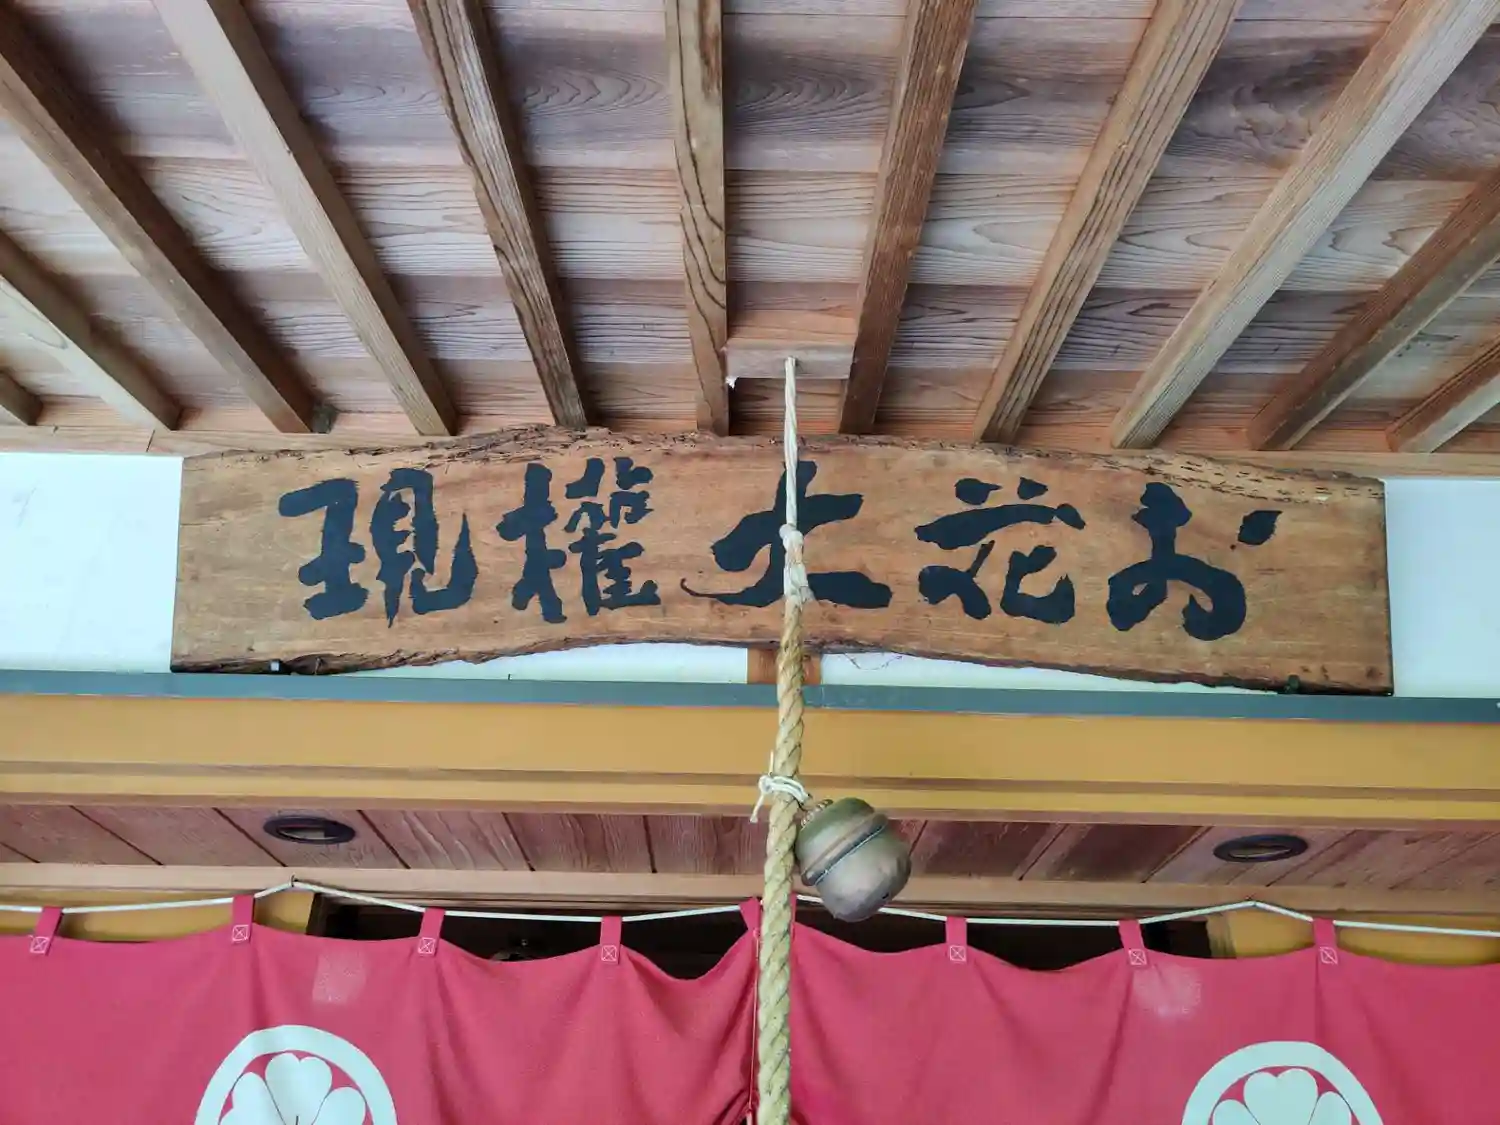 お花大權現